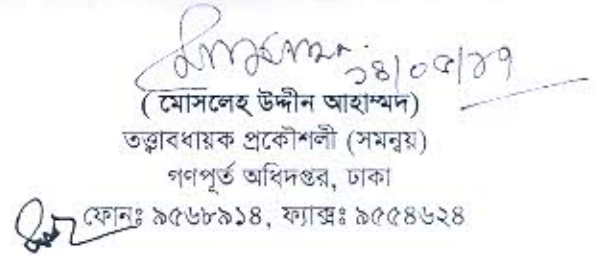 ২৪|০৫|১৭
( মোসলেহ উদ্দীন আহাম্মদ)
তত্ত্বাবধায়ক প্রকৌশলী (সমন্বয়)
গণপূর্ত অধিদপ্তর, ঢাকা
ফোনঃ ৯৫৬৮৯১৪, ফ্যাক্সঃ ৯৫৫৪৬২৪